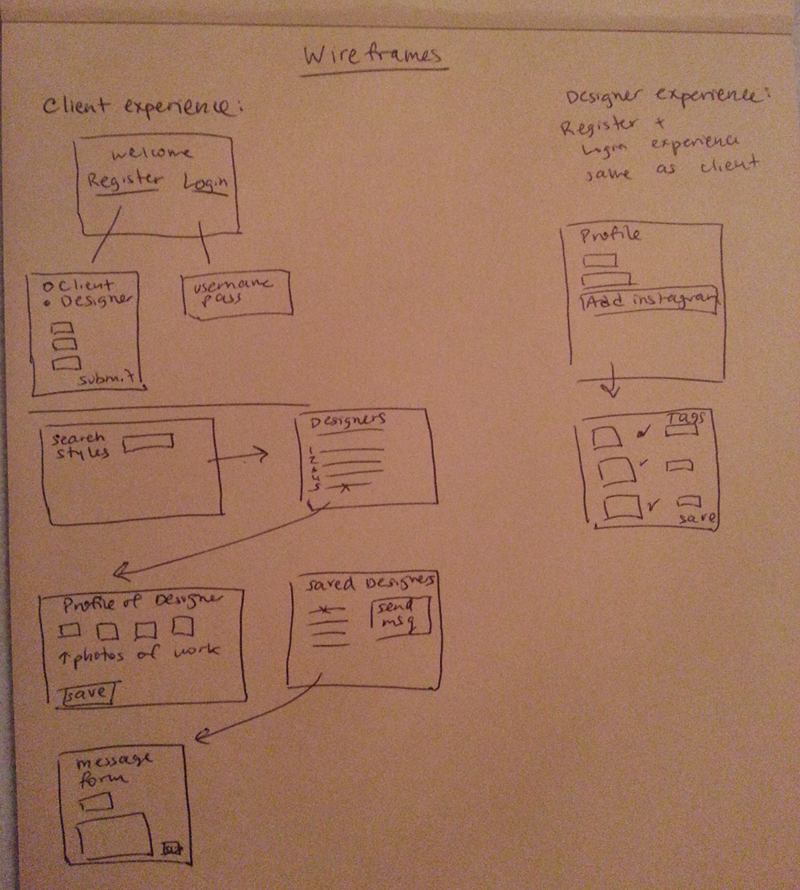 Wireframes
Client experience:
welcome
Register Login
Client
Designer
submit
username
pass
search
styles
Designers
1
2
3
4
5
Profile of Designer
photos of work
save
Saved Designers
send
msg
message
form
Designer experience:
Register +
Login experience
same as client
Profile
Add instagram
Tags
save